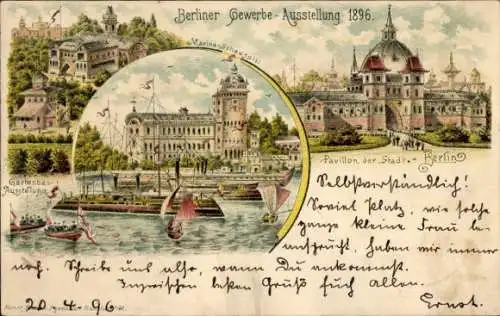 Berliner Gewerbe-Ausstellung 1896.
Marine-Schauspiel
Pavillon der "Stadt" Berlin
Gartenbau-
Ausstellung
Selbstverständlich!
Soviel Platz, wie solche
ganze kleine Frau be-
ansprucht, haben wir immer
noch. Schreibe uns also, wann Du ankommst.
Inzwischen besten Gruß Euch allen.
Ernst.
20.4.96